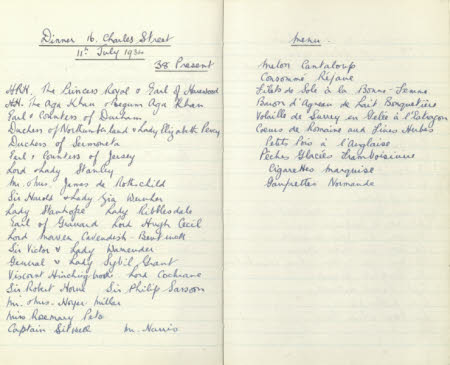 Dinner 16. Charles Street
11th July 1934
38 Present
HRH. The Princess Royal & Earl of Harewood
HH. The Aga Khan & Begum Aga Khan
Earl & Countess of Durham
Duchess of Northumberland & Lady Elizabeth Percy
Duchess of Sermoneta
Earl & Countess of Jersey
Lord & Lady Stanley
Mr. & Mrs. James de Rothschild
Sir Harold & Lady Zia Wernher
Lady Stanhope Lady Ribblesdale
Earl of Granard Lord Hugh Cecil
Lord Morven Cavendish-Bentinck
Sir Victor & Lady Warrender
General & Lady Sybil Grant
Viscount Hinchingbrooke Lord Cochrane
Sir Robert Horne Sir Philip Sassoon
Mr. & Mrs. Hoyer Millar
Miss Rosemary
Captain Sitwell Mr. Harris
Menu.
Melon Cantaloup
Consommé Réjane
Filets de Sole à la Bonne-Femme
Baron d'Agneau de Lait Bouquetière
Volaille de Surrey en Gelée à l'Estragon
Coeurs de Romaine aux Fines Herbes
Petits Pois à l'anglaise
Pêches Glacées Framboisines
Cigarettes Marquise
Gaufrettes Normande